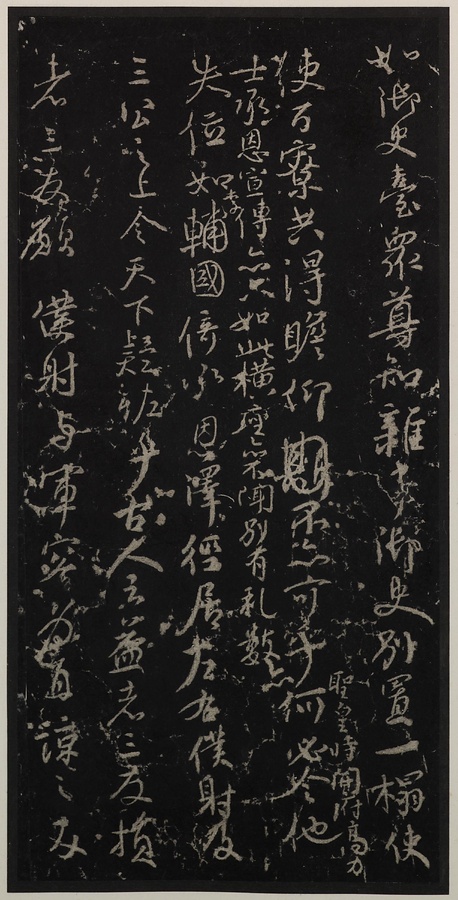 如御史臺眾尊知雜事御史別置一榻使
使百寮共得瞻仰不亦可乎何必令他
聖皇時開府高力
士承恩宣傳亦只如此橫座亦不聞別有礼數
失位如李輔國倚承恩澤徑居左右僕射及
三公之上令天下疑恠乎古人云益者三友損
者三友願僕射与軍容為直諒之友